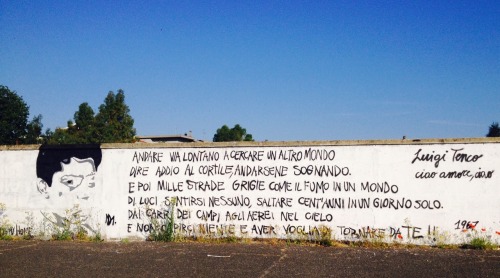 ANDARE VIA LONTANO A CERCARE UN ALTRO MONDO
DIRE ADDIO AL CORTILE, ANDARSENE SOGNANDO.
E POI MILLE STRADE GRIGIE COME IL FUMO IN UN MONDO
DI LUCI SENTIRSI NESSUNO, SALTARE CENT'ANNI IN UN GIORNO SOLO.
DAI CARRI DEI CAMPI AGLI AEREI NEL CIELO
E NON CAPIRCI NIENTE E AVER VOGLIA DI TORNARE DA TE !!
Luigi Tenco
ciao amore, ciao.
1967